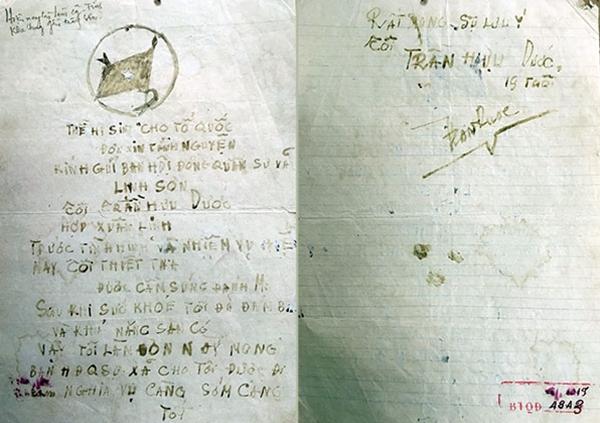 THỀ HI SINH CHO TỔ QUỐC
ĐƠN XIN TÌNH NGUYỆN
KÍNH GỬI BAN HỘI ĐỒNG QUÂN SỰ XÃ
LINH SƠN
TÔI TRẦN HỮU DƯỚC
HỢP XUÂN LINH
TRƯỚC TÌNH HÌNH VÀ NHIỆM VỤ
NAY TÔI THIẾT THA
ĐƯỢC CẦM SÚNG ĐÁNH MĨ
SAU KHI SỨC KHOẺ TÔI ĐÃ ĐẢM BẢO
VÀ KHẢ NĂNG SẴN CÓ
VẬY TÔI LÀM ĐƠN NÀY MONG
BAN HĐQS XÃ CHO TÔI ĐƯỢC ĐI
NGHĨA VỤ CÀNG SỚM CÀNG
TỐT
RẤT MONG SỰ LƯU Ý
TÔI
TRẦN HỮU DƯỚC
19 TUỔI
BTQĐ